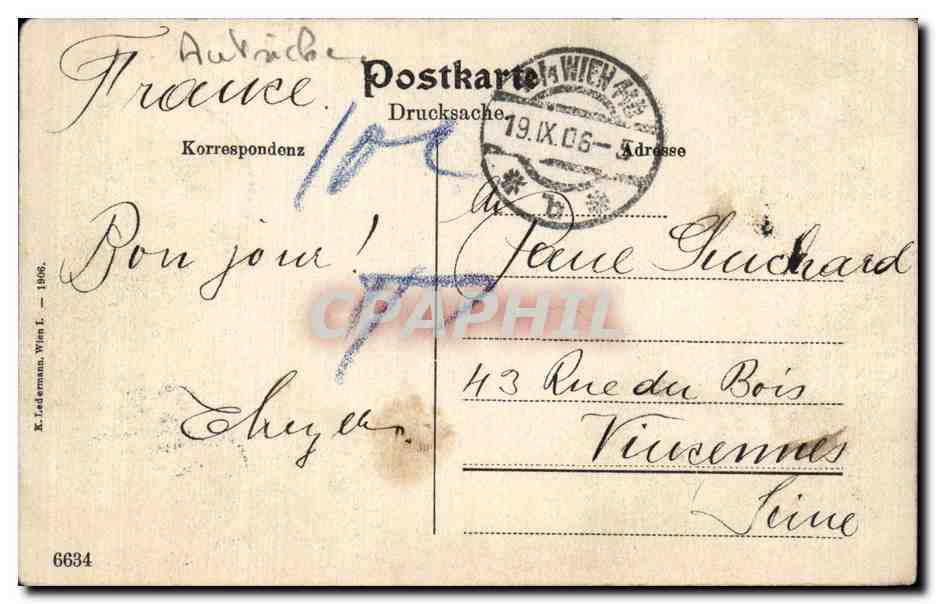 Autriche
France.
Postkarte
Drucksache
Korrespondenz
Adresse
WIEN
19.IX.06-
b
10c
T
Bon jour!
Jane Guichard
43 Rue du Bois
Vincennes
Seine
K. Ledermann, Wien I. — 1906.
6634
CPAPHIL